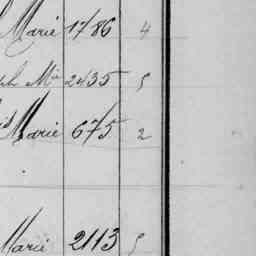 Marie 1786 4
ph Mie 2435 5
Marie 675 2
Marie 2113 5